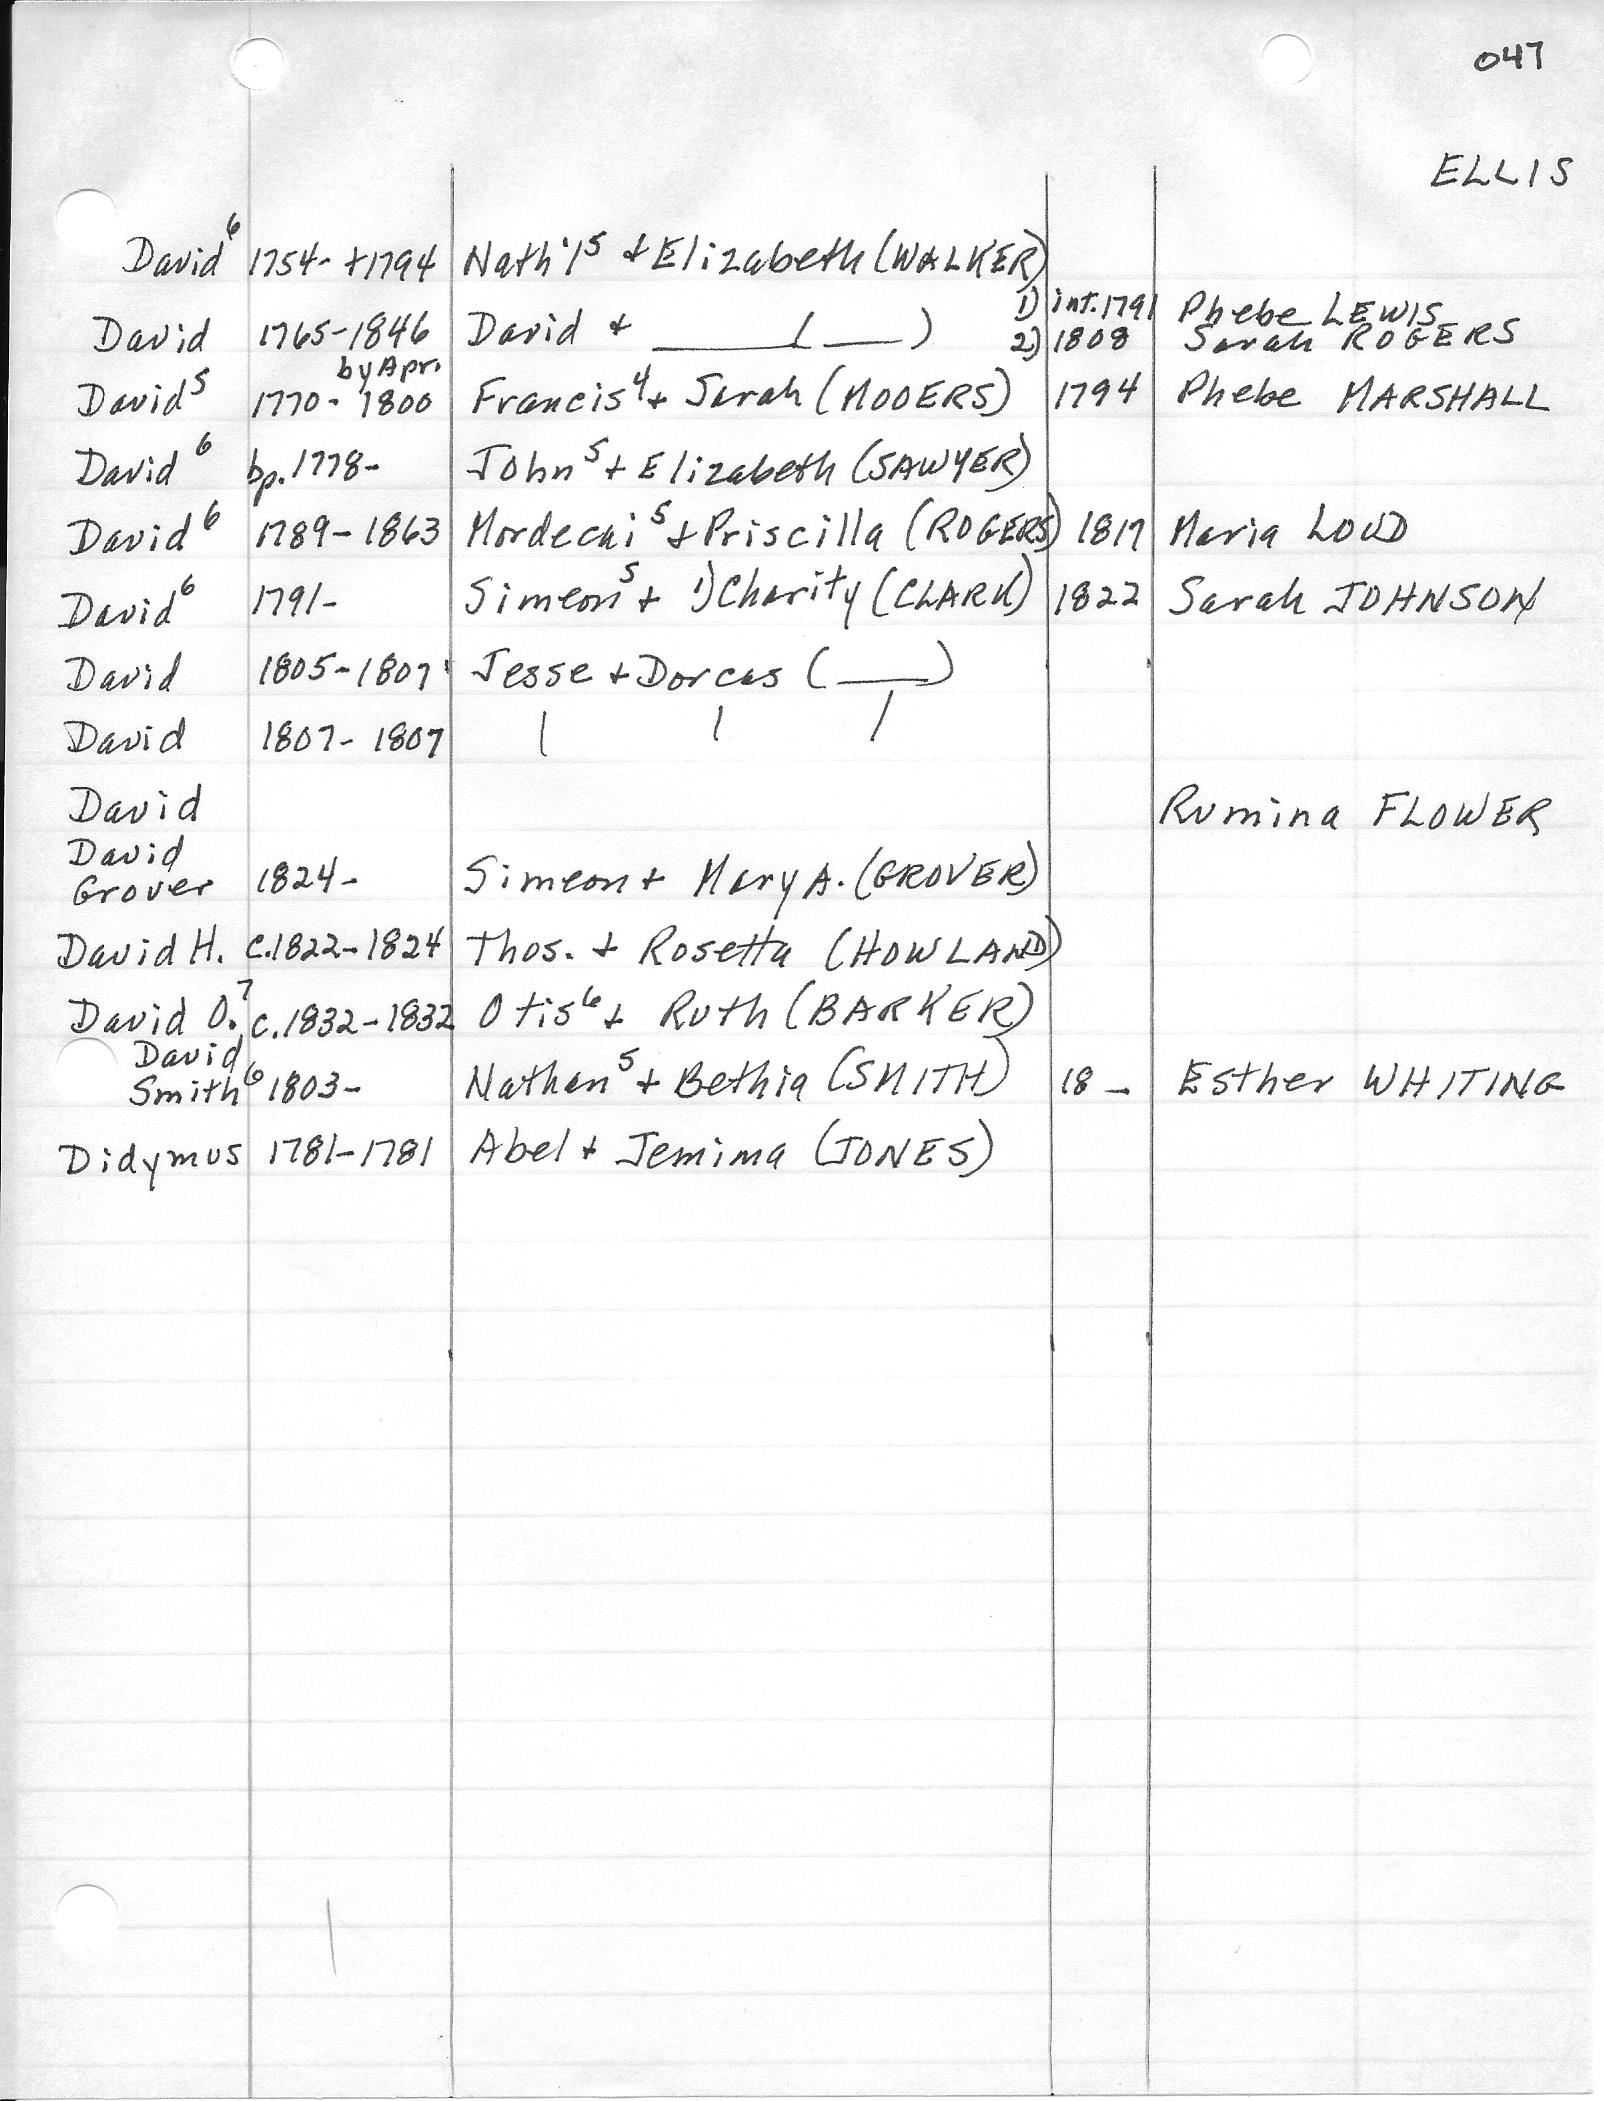 047
ELLIS
David⁶ 1754- +1794 Nath'l⁵ + Elizabeth (WALKER)
1) int. 1791 Phebe LEWIS
David 1765-1846 David + ____ (___) 2) 1808 Sarah ROGERS
by Apr.
David⁵ 1770- 1800 Francis⁴ + Sarah (MOOERS) 1794 Phebe MARSHALL
David⁶ bp. 1778- John⁵ + Elizabeth (SAWYER)
David⁶ 1789-1863 Mordecai⁵ + Priscilla (ROGERS) 1817 Maria LOUD
David⁶ 1791- Simeon⁵ + 1) Charity (CLARK) 1822 Sarah JOHNSON
David 1805-1807 Jesse + Dorcas (___)
David 1807-1807 | | |
David Rumina FLOWER
David
Grover 1824- Simeon + Mary A. (GROVER)
David H. c.1822-1824 Thos. + Rosetta (HOWLAND)
David O.⁷ c.1832-1832 Otis⁶ + Ruth (BARKER)
David
Smith⁶ 1803- Nathan⁵ + Bethia (SMITH) 18_ Esther WHITING
Didymus 1781-1781 Abel + Jemima (JONES)